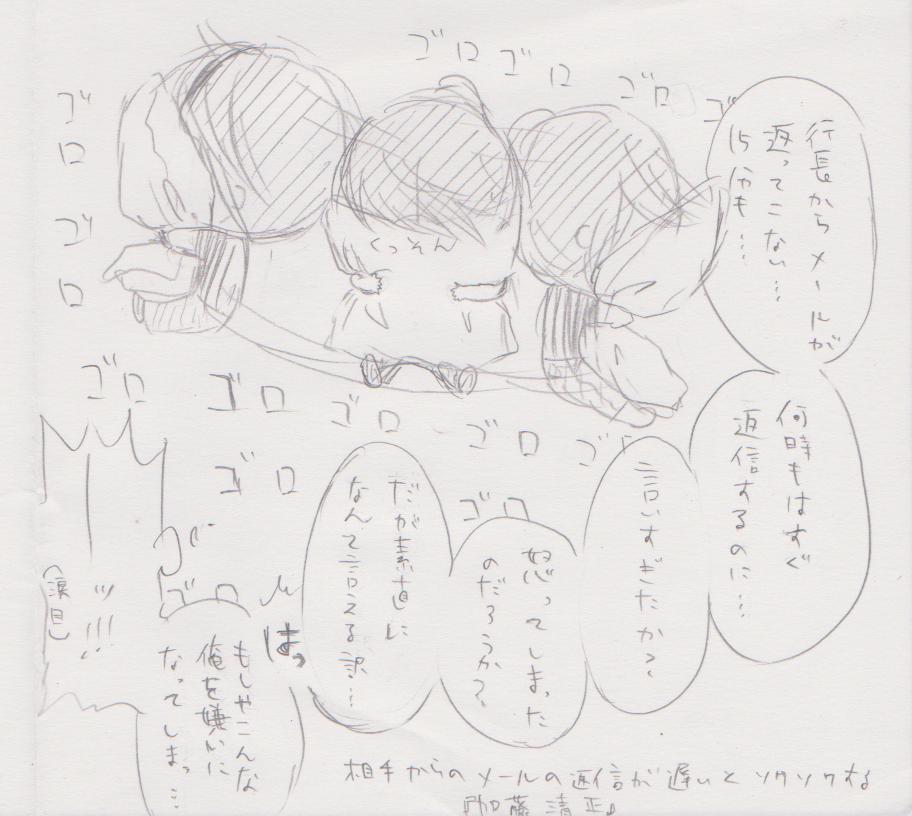 ゴロゴロ
ゴロ
ゴ
ゴロゴロ
行長からメールが
返ってこない…
15分も…
くっそん
何時もはすぐ
返信するのに…
言いすぎたか?
怒ってしまった
のだろうか?
だが素直に
なんて言える訳…
ゴロ
ゴロ
ゴロ
ゴロ
ゴ
ゴロ
ゴロ
ゴロ
はっ
もしやこんな
俺を嫌いに
なってしまっ…
ッ!!!
(涙目)
相手からのメールの返信が遅いとソワソワする
『加藤清正』